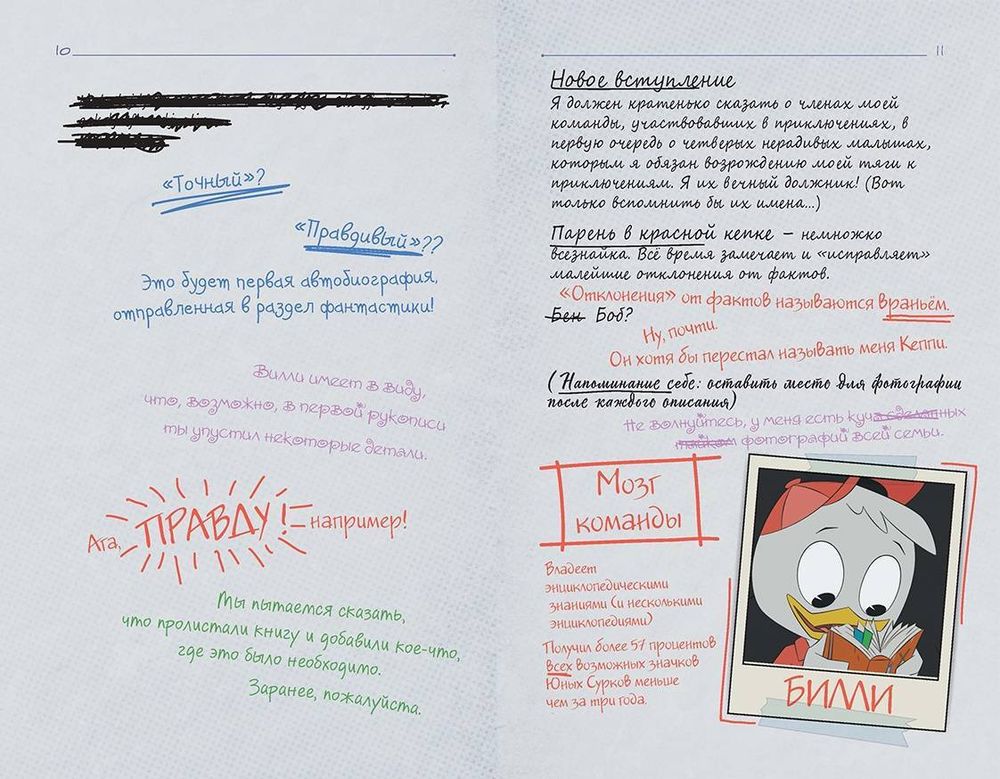 10
«Точный»?
«Правдивый»??
Это будет первая автобиография,
отправленная в раздел фантастики!
Вилли имеет в виду,
что, возможно, в первой рукописи
ты упустил некоторые детали.
Ага, ПРАВДУ! например!
Мы пытаемся сказать,
что пролистали книгу и добавили кое-что,
где это было необходимо.
Заранее, пожалуйста.
11
Новое вступление
Я должен кратенько сказать о членах моей
команды, участвовавших в приключениях, в
первую очередь о четверых нерадивых малышах,
которым я обязан возрождению моей тяги к
приключениям. Я их вечный должник! (Вот
только вспомнить бы их имена...)
Парень в красной кепке – немножко
всезнайка. Всё время замечает и «исправляет»
малейшие отклонения от фактов.
«Отклонения» от фактов называются враньём.
Бен Боб?
Ну, почти.
Он хотя бы перестал называть меня Кеппи.
(Напоминание себе: оставить место для фотографии
после каждого описания)
Не волнуйтесь, у меня есть куча сделанных
тайком фотографий всей семьи.
Мозг
команды
Владеет
энциклопедическими
знаниями (и несколькими
энциклопедиями)
Получил более 57 процентов
всех возможных значков
Юных Сурков меньше
чем за три года.
БИЛЛИ